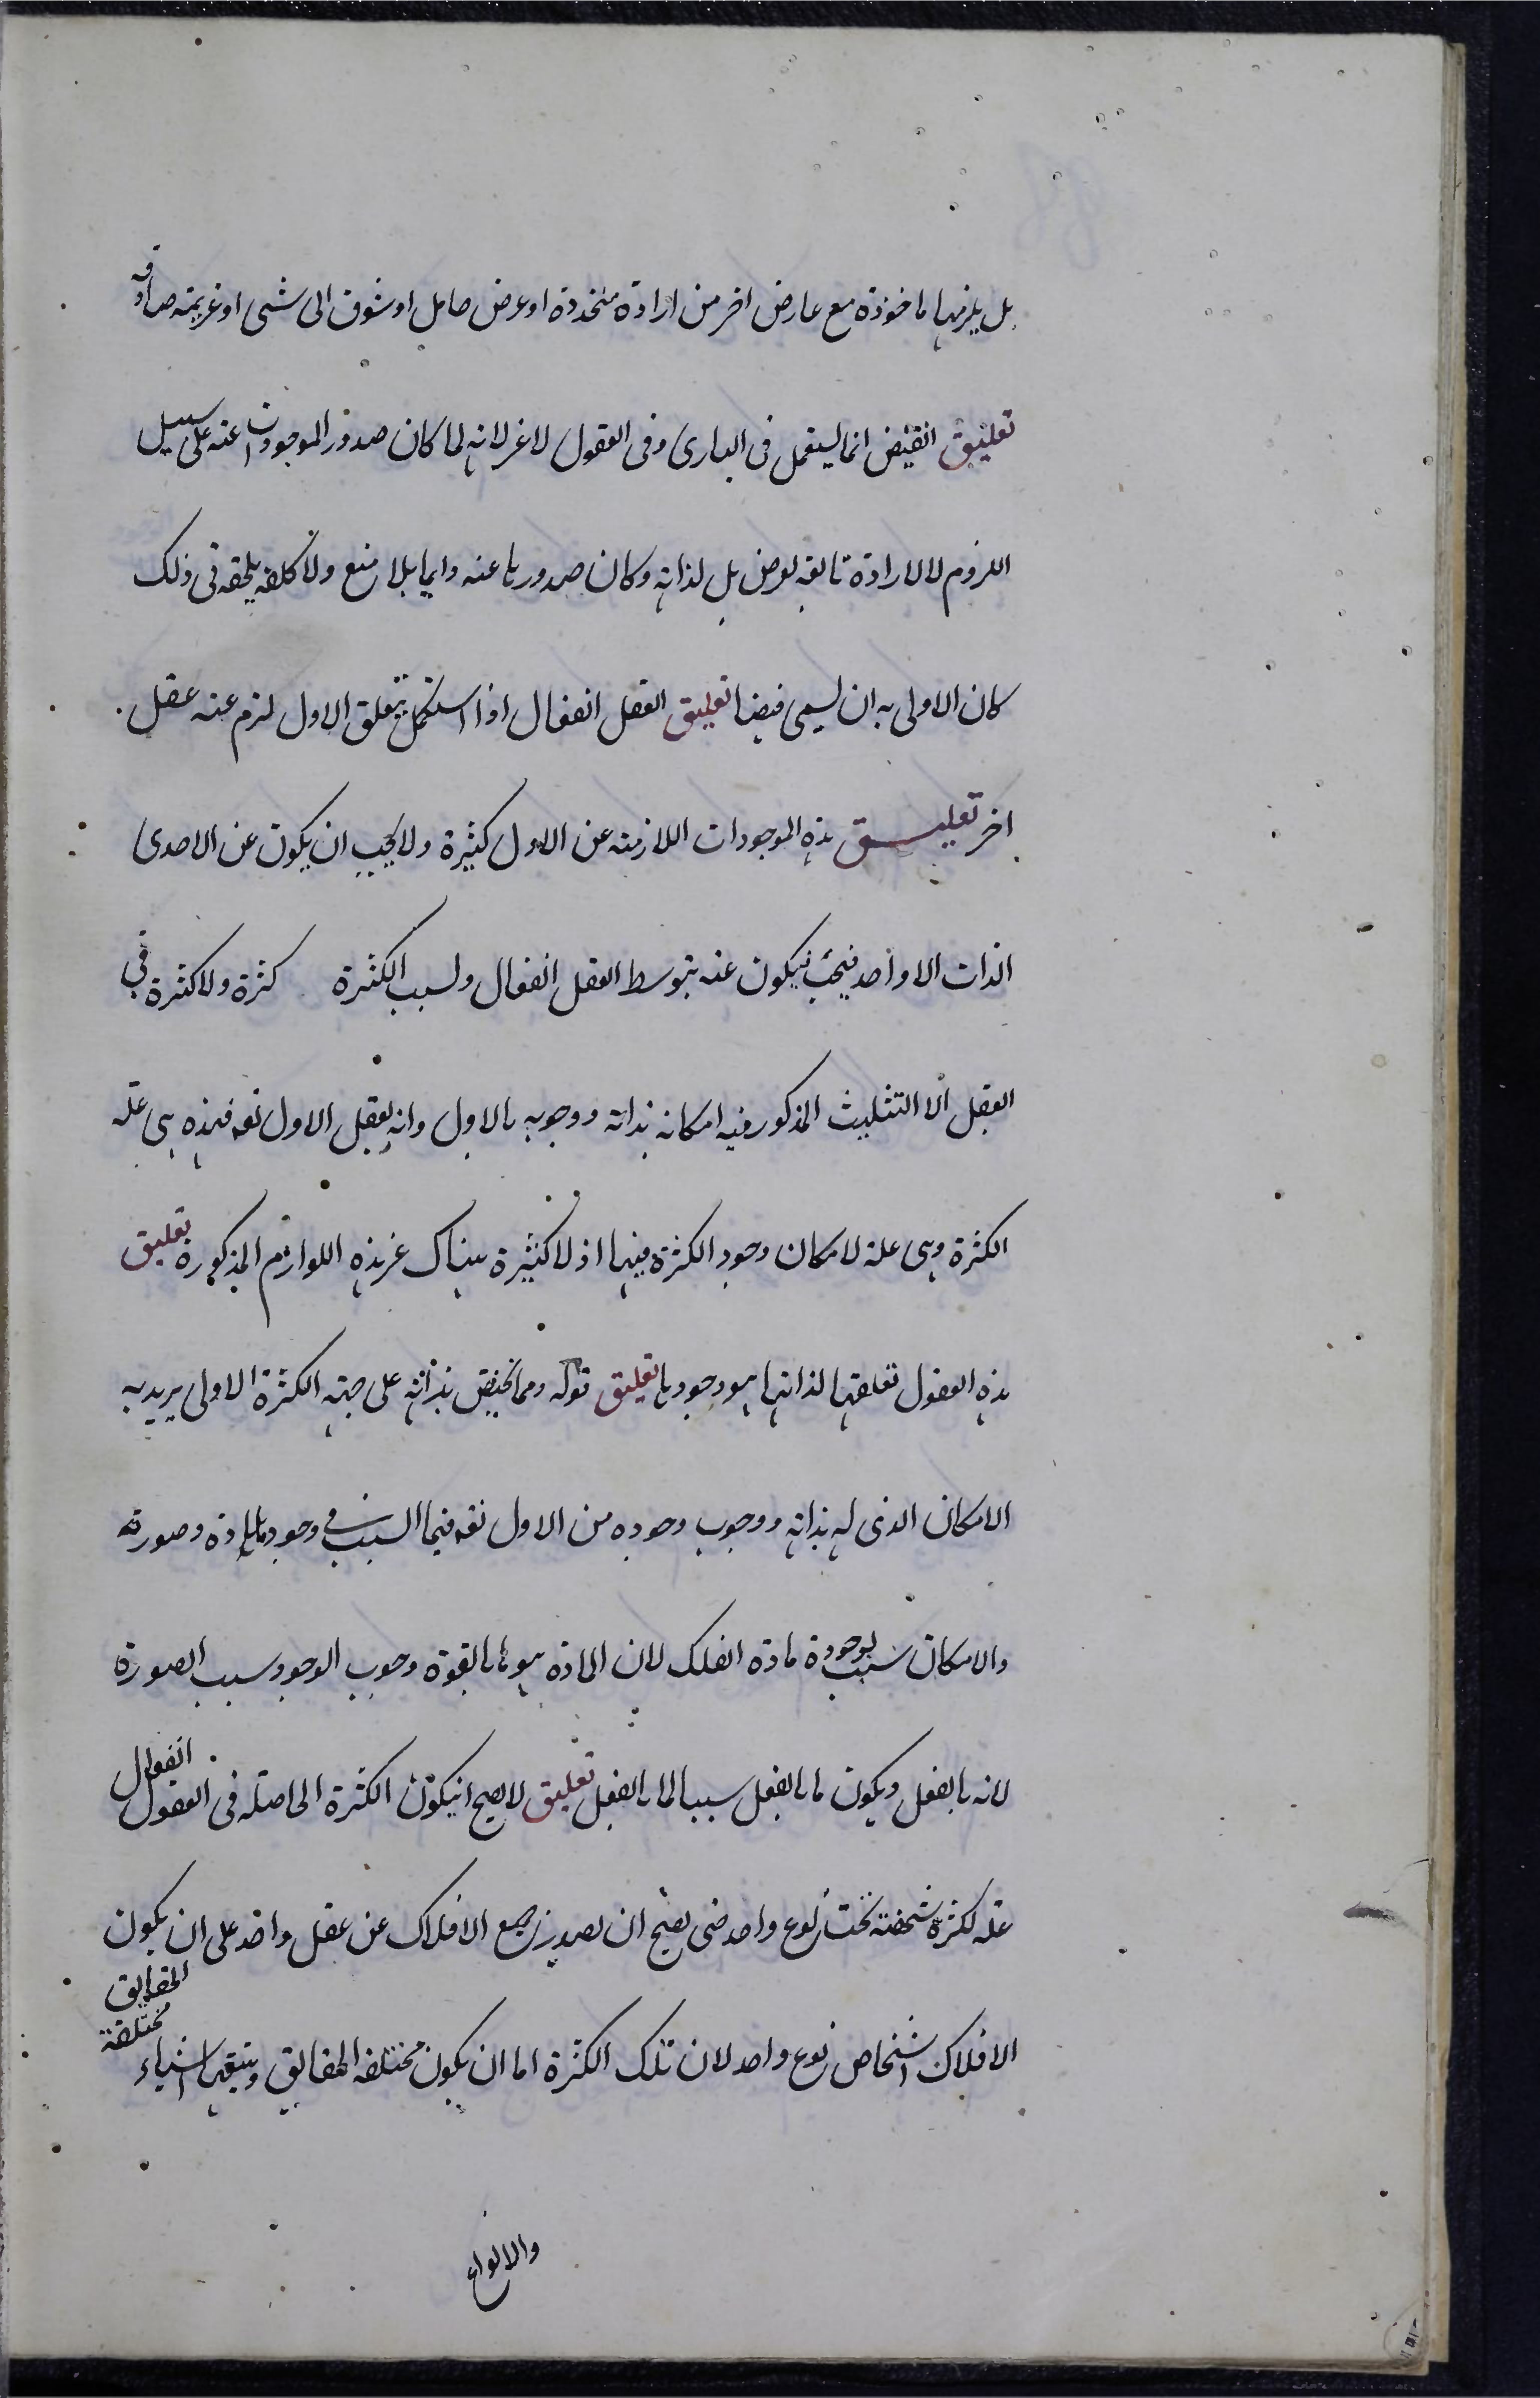 بل يلزمها ماخوذة مع عارض اخر من ارادة متجددة او عرض حامل او شوق الى شىء او عزيمة صادقه
تعليق الفيض انما يستعمل فى البارى وفى العقول لاغر لانه لما كان صدور الموجودات عنه على سبيل
اللزوم لا لارادة تابعه لغرض بل لذاته وكان صدورها عنه دايما بلا منع ولا كلفه يلحقه فى ذلك
كان الاولى به ان يسمى فيضا تعليق العقل الفعال اذا استكمل بتعلق الاول لزم عنه عقل
اخر تعليق هذه الموجودات اللازمته عن الاول كثيرة ولا يجب ان يكون عن الاحدى
الذات الا واحد فيجب فيكون عنه بتوسط العقل الفعال ولسبب الكثرة كثرة ولا كثرة فى
العقل الا التثليث المذكور فيه امكانه بذاته ووجوبه بالاول وانه يعقل الاول تعه فهذه هى علة
الكثرة وهى علة لامكان وجود الكثرة فيها اذ لا كثيرة هناك غر هذه اللوازم المذكورة تعليق
هذه العقول تعلقها لذاتها هو وجودها تعليق قوله ومما يختص بذاته على جهته الكثرة الاولى يريد به
الامكان الذى له بذاته ووجوب وجوده من الاول تعه فيما السبب فى وجود مادة وصورته
والامكان سبب لوجودة مادة الفلك لان المادة هو ما بالقوة وجوب الوجود سبب الصورة
لانه بالفعل ويكون ما بالفعل سببا لما بالفعل تعليق لا يصح انيكون الكثرة الحاصله فى العقول الفعال
علة لكثرة شخصته تحت نوع واحد حتى يصح ان يصدر جميع الافلاك عن عقل واحد على ان يكون
الافلاك اشخاص نوع واحد لان تلك الكثرة اما ان يكون مختلفه الحقايق ويتبعها اشياء مختلفة الحقايق
والانواع